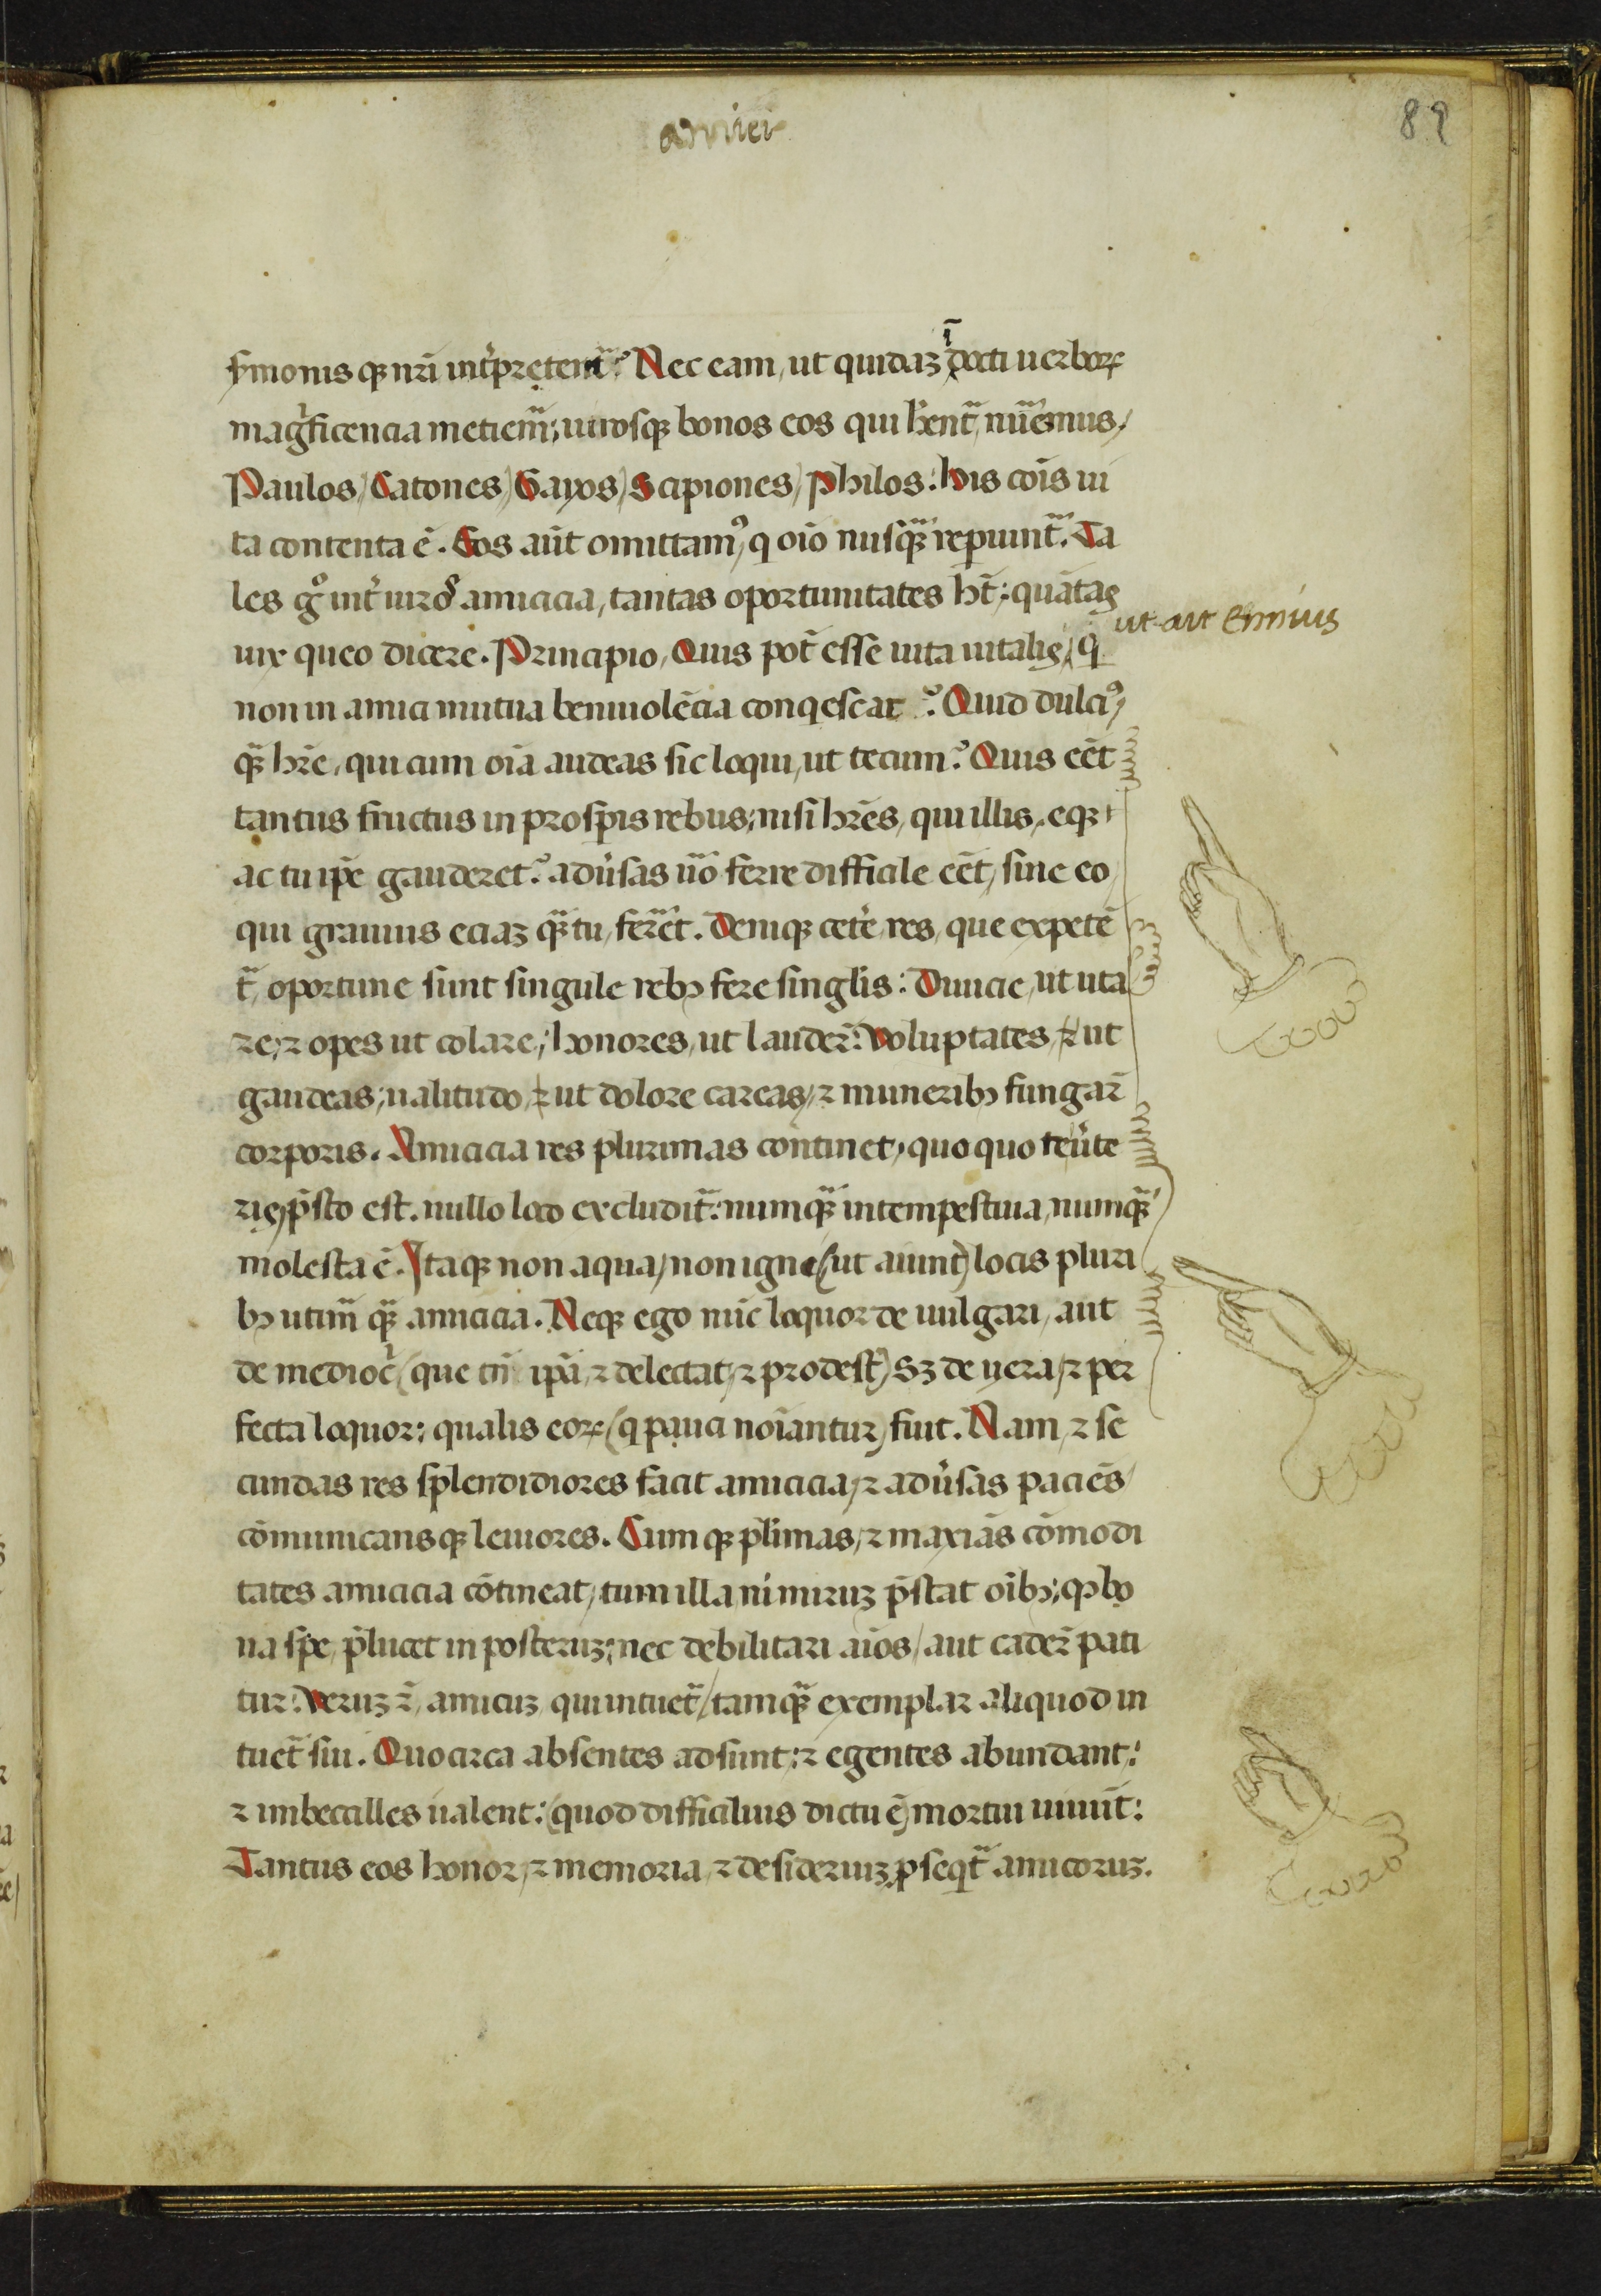 amici
89
sṁonis qꝫ nr̄i int̓pretem̃᷑ Nec eam, ut quidaꝫ ī docti uerboꝝ
mag̓ficencia metiem̃᷑; uirosqꝫ bonos eos qui hēnt᷑, nũẽmus,
Paulos, Catones, Gayos, Scipiones, Philos: his cōis ui
ta contenta ē. Eos aūt omittamꝰ, q oīo nusq̃ꝫ repiunt᷑. Ta
les gͦ int̓ uiros amicicia, tantas oportunitates hт̄: quātas
ut ait Ennius
uix queo dicere. Principio, Quis pōt esse uita uitalis, q̄
non in amici mutua beniuolēcia conqescat? Quid dulciꝰ,
q̃ꝫ hr̄e, qui cum oīa audeas sic loqui, ut tecum? Quis eēt
tantus fructus in prosperis rebus; nisi hr̄es, qui illis, eqꝫ
ac tu ip̄e gauderet? adũsas ũo ferre difficile eēt, sine eo,
qui grauius eciaꝫ q̃ꝫ tu, ferret. Deniqꝫ cet̓e res, que expetē
t᷑, oportune sunt singule rebꝫ fere singl̄is: Diuicie, ut uta
re, ⁊ opes ut colare; honores, ut lauder̄: Voluptates, ⁊ ut
gaudeas; ualitudo, ⁊ ut dolore careas, ⁊ muneribꝫ fungar̄
corporis. Amicicia res plurimas continet, quo quo teũte
ris, p̄sto est. nullo loco excludit᷑: numq̃ꝫ intempestiua, numq̃ꝫ
molesta ē. Itaqꝫ non aqua, non igne (ut aiunt) locis pluri
bꝫ utim᷑ q̃ꝫ amicicia. Neqꝫ ego nūc loquor de uulgari, aut
de mediocr̓ (que tn̄ ip̄a, ⁊ delectat, ⁊ prodest) Sꝫ de uera, ⁊ per
fecta loquor: qualis eoꝝ (q pauci noīantur) fuit. Nam, ⁊ se
cundas res splendidiores facit amicicia, ⁊ adũsas paciēs
cōmunicansqꝫ leuiores. Cumqꝫ pl̄imas, ⁊ maxīas cōmodi
tates amicicia cōtineat, tum illa nimiruꝫ p̄stat oībꝫ; qꝫ bo
na spe, p̄lucet in posteruꝫ; nec debilitari aīos, aut cader̄ pati
tur: Veruꝫ .n. amicuꝫ qui intuet᷑, tamq̃ꝫ exemplar aliquod in
tuet᷑ sui. Quocirca absentes adsunt: ⁊ egentes abundant:
⁊ imbecilles ualent: (quod difficilius dictu ē) mortui uiuūt:
Tantus eos honor, ⁊ memoria, ⁊ desideriuꝫ ꝓseqt᷑ amicoruꝫ.